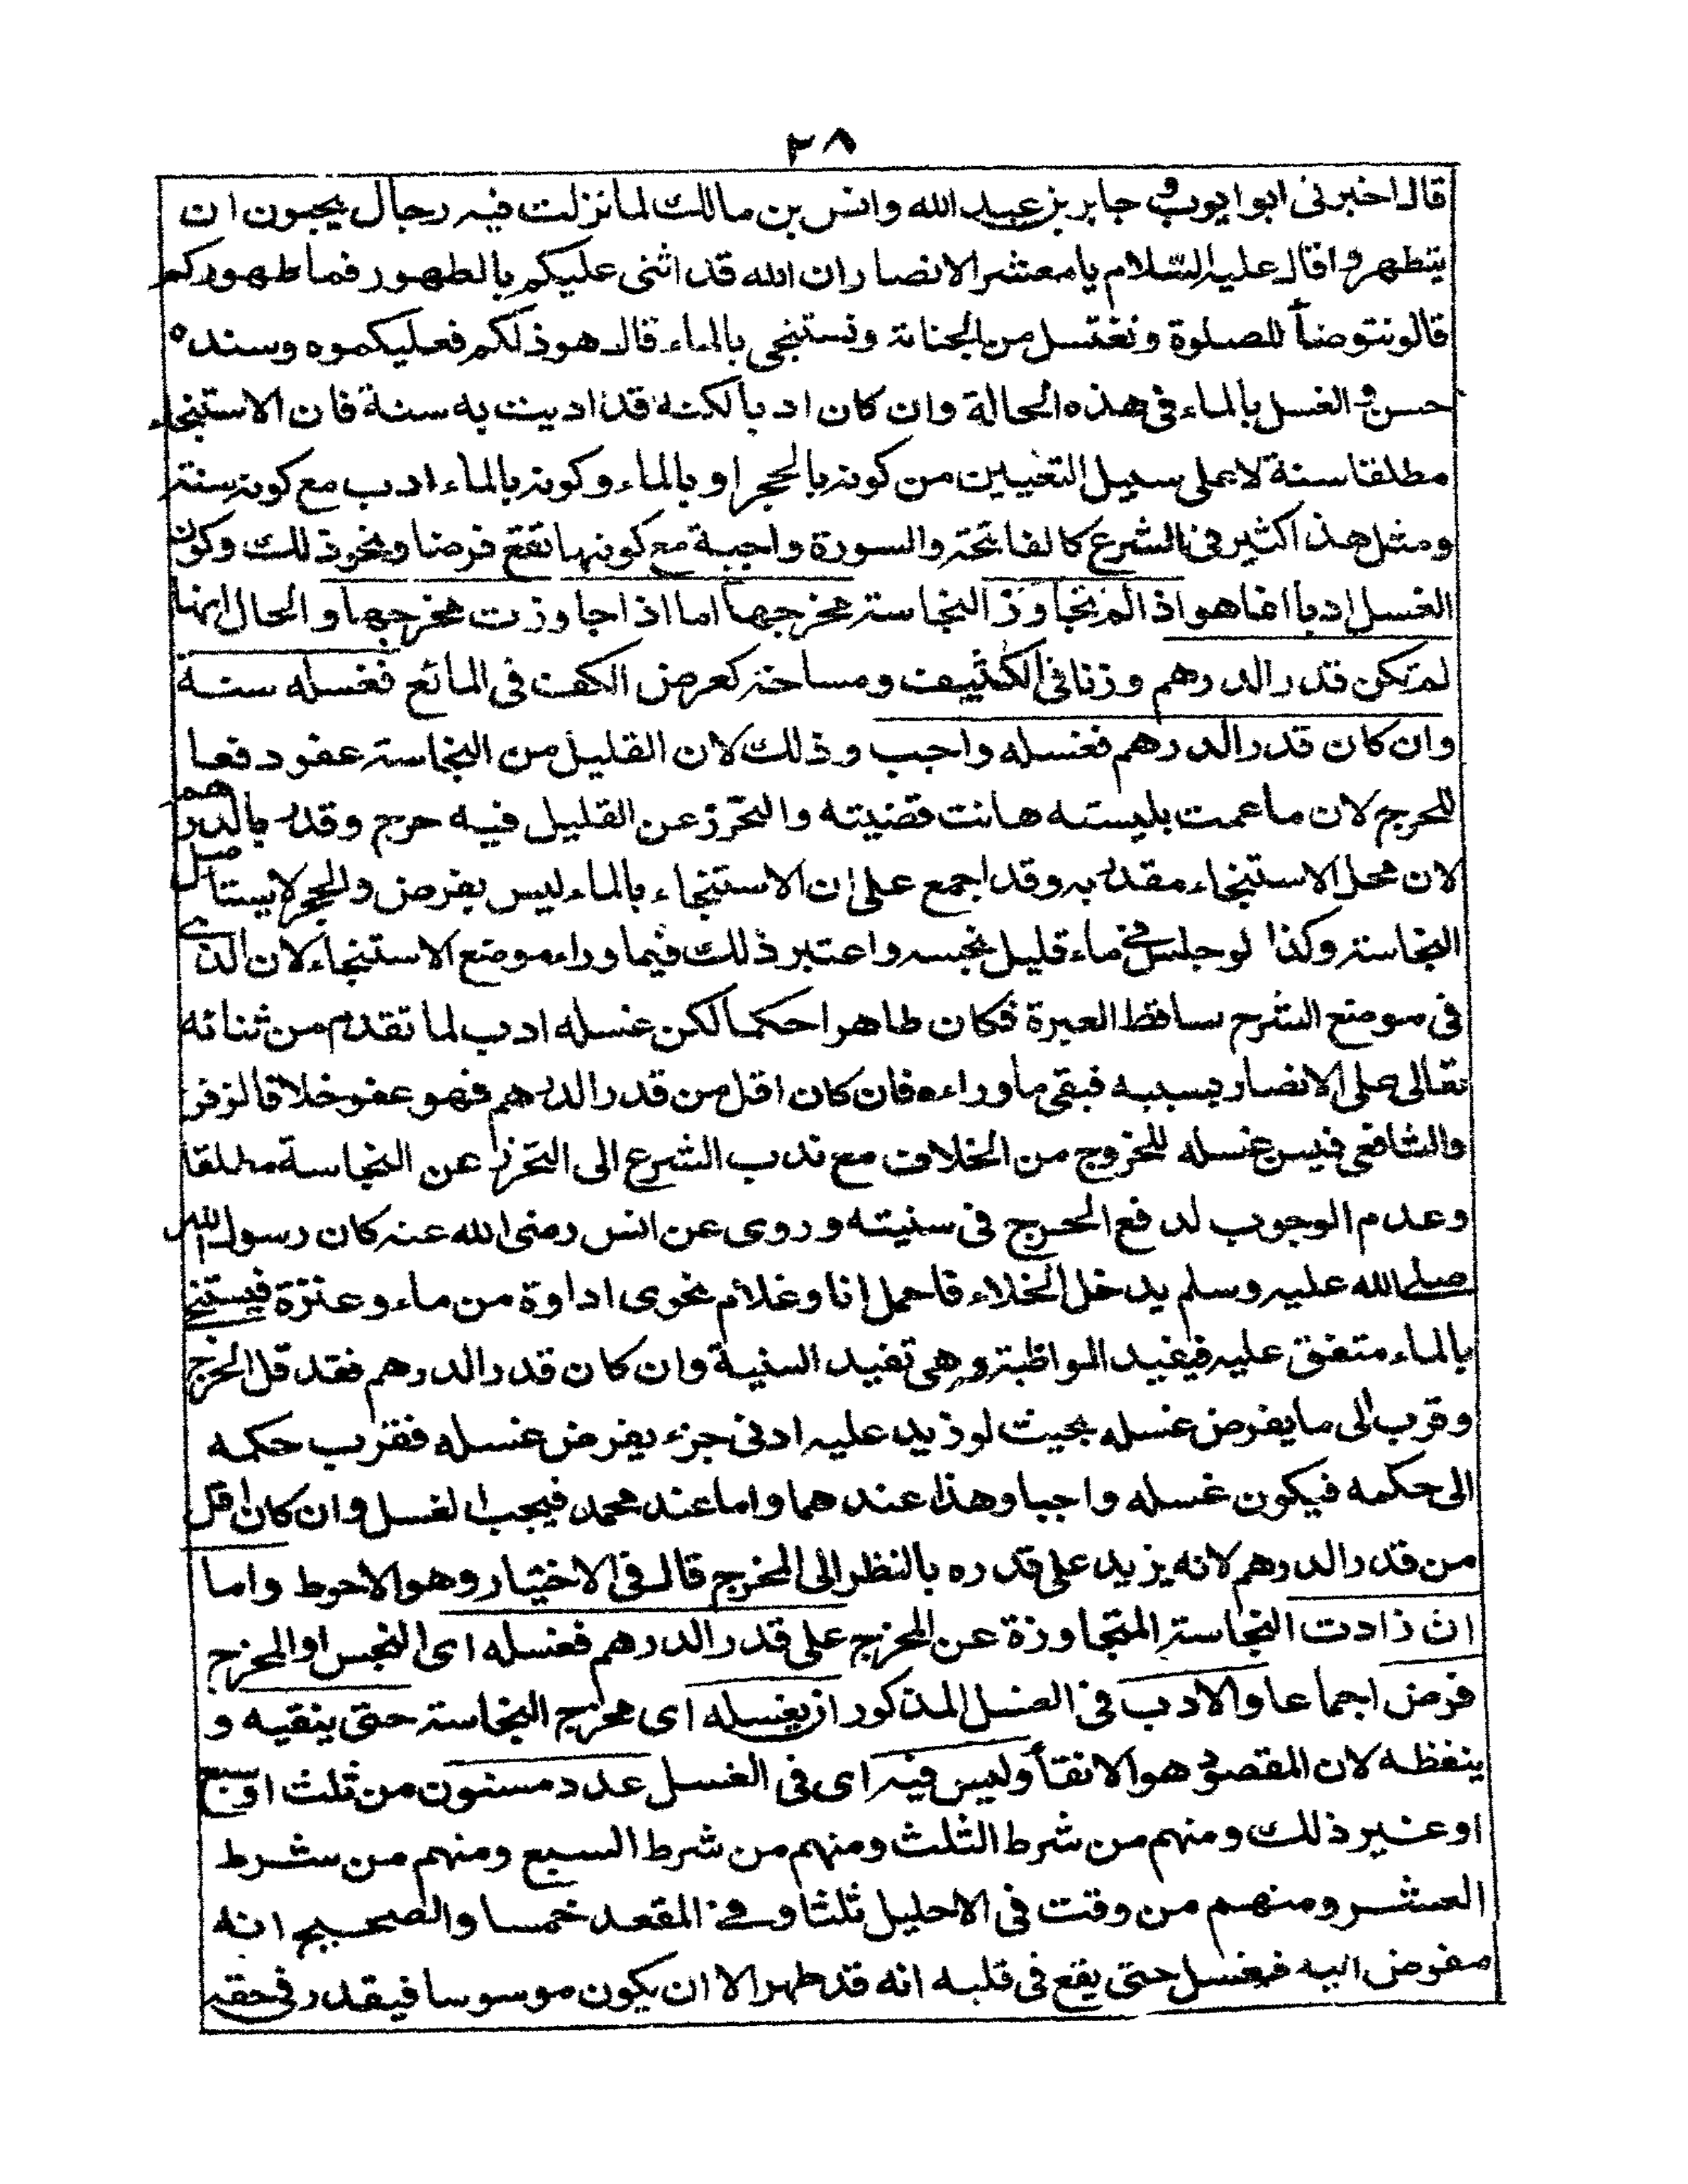 ٢٨
قال اخبرنى ابوايوب و جابر بن عبد الله وانس بن مالك لما نزلت فيه رجال يحبون ان
يتطهروا قال عليه السّلام يا معشر الانصار ان الله قد اثنى عليكم بالطهور فما طهوركم
قالو نتوضأ للصلوة ونغتسل من الجنابة ونستنجى بالماء قال هو ذلكم فعليكموه وسنده
حسن و الغسل بالماء فى هذه الحالة وان كان ادبا لكنه قد اديت به سنة فان الاستنجاء
مطلقا سنة لا على سبيل التعيين من كونه بالحجر او بالماء وكونه بالماء ادب مع كونه سنة
ومثل هذا كثير فى الشرع كالفاتحة والسورة واجبة مع كونها تقع فرضا ونحو ذلك وكون
الغسل ادبا انما هو اذا لم تتجاوز النجاسة مخرجها اما اذا جاوزت مخرجها والحال انها
لم تكن قدر الدرهم وزنا فى الكثيف ومساحة كعرض الكف فى المائع فغسله سنة
وان كان قدر الدرهم فغسله واجب وذلك لان القليل من النجاسة عفو دفعا
للحرج لان ما عمت بليسته هانت قضيته والتحرز عن القليل فيه حرج وقدر بالدرهم
لان محل الاستنجاء مقدر به وقد اجمع على ان الاستنجاء بالماء ليس بفرض والحجر لا يستاصل
النجاسة وكذا لو جلس فى ماء قليل نجسه واعتبر ذلك فيما وراء موضع الاستنجاء لان الذى
فى موضع الشرح ساقط العبرة فكان طاهرا حكما لكن غسله ادب لما تقدم من ثنائه
تعالى على الانصار بسببه فبقى ما وراءه فان كان اقل من قدر الدرهم فهو عفو خلافا لزفر
والشافعى فيسن غسله للخروج من الخلاف مع ندب الشرع الى التحرز عن النجاسة مطلقا
وعدم الوجوب لدفع الحرج فى سنيته وروى عن انس رضى الله عنه كان رسول الله
صلى الله عليه وسلم يدخل الخلاء فاحمل انا وغلام نحوى اداوة من ماء وعنزة فيستنجى
بالماء متفق عليه فيفيد المواظبة وهى تفيد السنية وان كان قدر الدرهم فقد قل الحرج
وقرب الى ما يفرض غسله بحيث لو زيد عليه ادنى جزء يفرض غسله فقرب حكمه
الى حكمه فيكون غسله واجبا وهذا عندهما واما عند محمد فيجب الغسل وان كان اقل
من قدر الدرهم لانه يزيد على قدره بالنظر الى المخرج قال فى الاختيار وهو الاحوط واما
ان زادت النجاسة المتجاوزة عن المخرج على قدر الدرهم فغسله اى النجس او المخرج
فرض اجماعا والادب فى الغسل المذكور ان يغسله اى مخرج النجاسة حتى ينقيه و
ينظفه لان المقصود هو الانقاء وليس فيه اى فى الغسل عدد مسنون من ثلث او سبع
او غير ذلك ومنهم من شرط الثلث ومنهم من شرط السبع ومنهم من شرط
العشر ومنهم من وقت فى الاحليل ثلثا وفى المقعد خمسا والصحيح انه
مفوض اليه فيغسل حتى يقع فى قلبه انه قد طهر الا ان يكون موسوسا فيقدر فى حقه